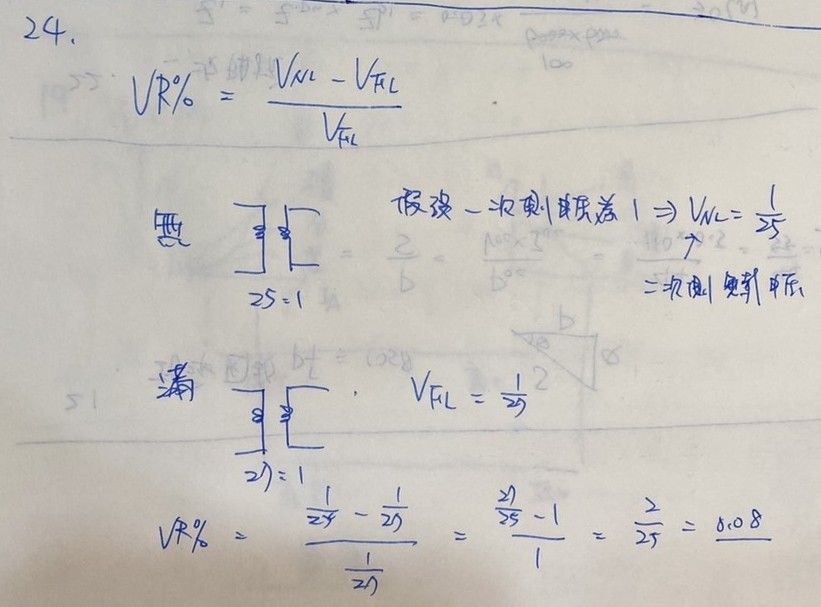 24.
VR% = (V_NL - V_FL) / V_FL
無 25:1 假設一次側電壓為 1 ⇒ V_NL = 1/25
↑
二次側無載電壓
滿 27:1 V_FL = 1/27
VR% = (1/25 - 1/27) / (1/27) = (27/25 - 1) / 1 = 2/25 = 0.08